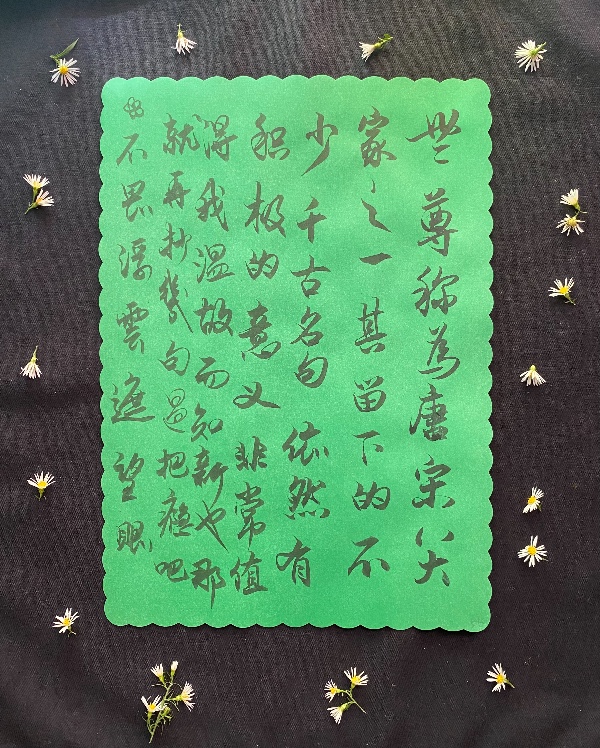 世尊称為唐宋八大
家之一其留下的不
少千古名句依然有
积极的意义非常值
得我温故而知新也那
就再抄幾句過把瘾吧
不畏浮雲遮望眼